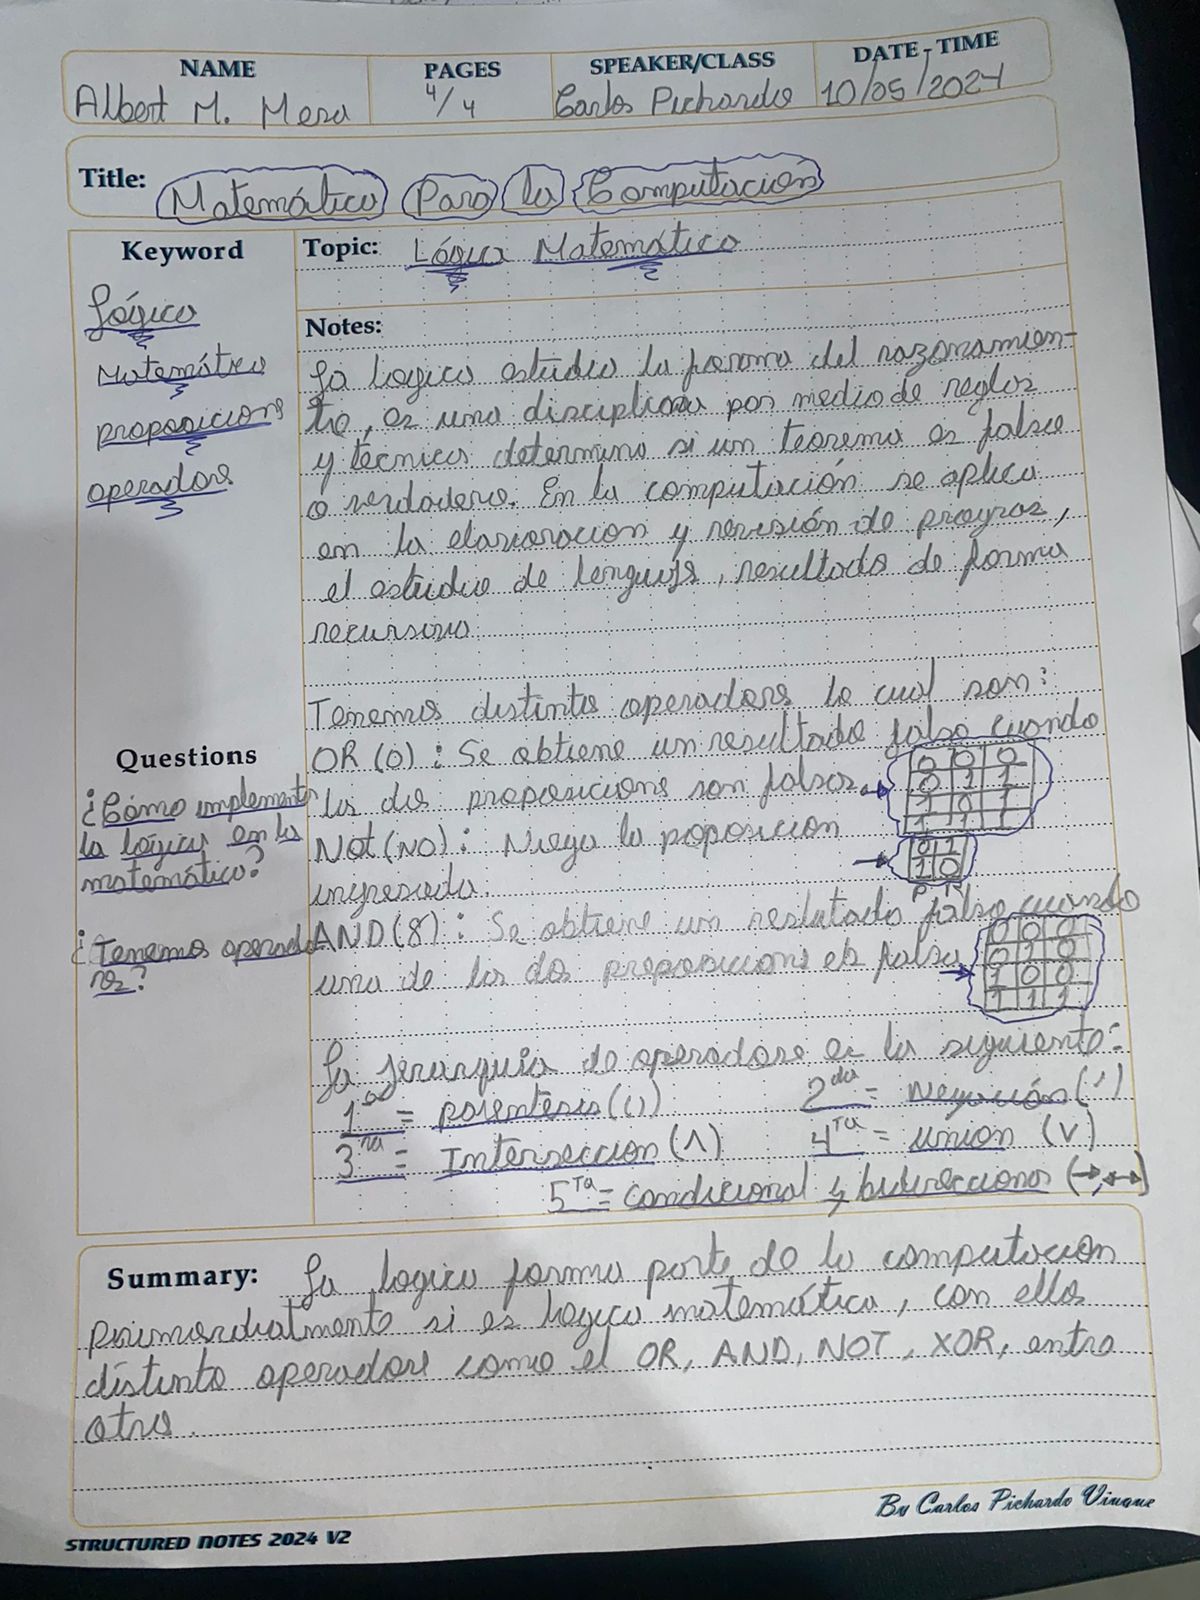 NAME PAGES SPEAKER/CLASS DATE - TIME
Albert M. Mera 4/4 Carlos Pichardo 10/05/2024
Title: Matemática Para la Computación
Keyword
Lógica
Matemática
proposicions
operadors
Topic: Lógica Matemática
Notes:
La logica estudia la forma del razonamien-
to, es una disciplina por medio de reglas
y técnicas determina si un teorema es falso
o verdadero. En la computación se aplica
en la elavoracion y revisión de progras,
el estudio de lenguajs, resultado de forma
recursiva.
Tenemos distinto operadores lo cual son:
OR (O): Se obtiene un resultado falso cuando
las dos proposicions son falsas.
0 0 0
0 1 1
1 0 1
1 1 1
Not (NO): Niega la poposicion
ingresada.
0 1
1 0
AND (8): Se obtiene un reslutado falso cuando
una de las dos proposicions es falsa
0 0 0
0 1 0
1 0 0
1 1 1
Questions
¿Cómo implementa
la lógica en la
matemática?
¿Tenemos operado
res?
La jerarquia de operadore es la siguiente:
1ra = parentesis ( () ) 2da = Negación (')
3ra = Interseccion (Λ) 4Ta = union (V)
5Ta = condicional y bidirecciona (→,↔)
Summary: La logica forma parte de la computacion
primordialmente si es logica matemática, con ella
distinto operadore como el OR, AND, NOT, XOR, entre
otros.
By Carlos Pichardo Viuque
STRUCTURED NOTES 2024 V2